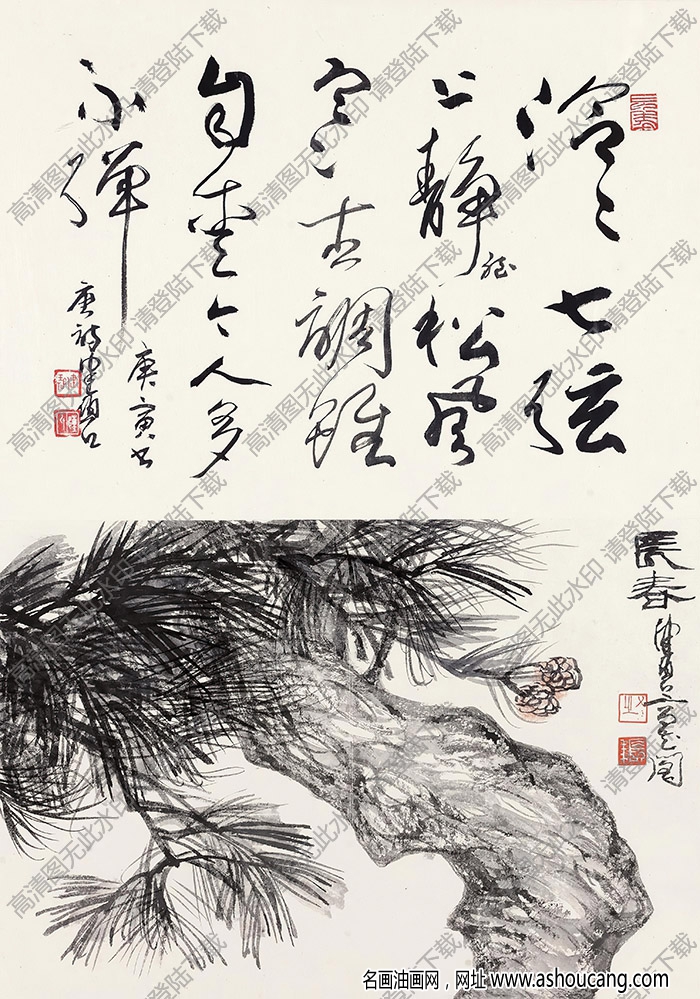 泠〻七弦
上靜聽松風
寒古調雖
自愛今人多
不彈
庚寅書
唐詩
長春
高清图无此水印 请登陆下载
名画油画网，网址 www.ashoucang.com